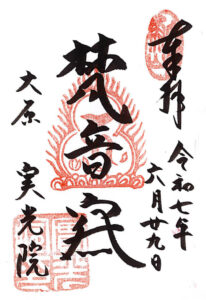 奉拝
令和七年
六月廿九日
梵音窟
大原
実光院